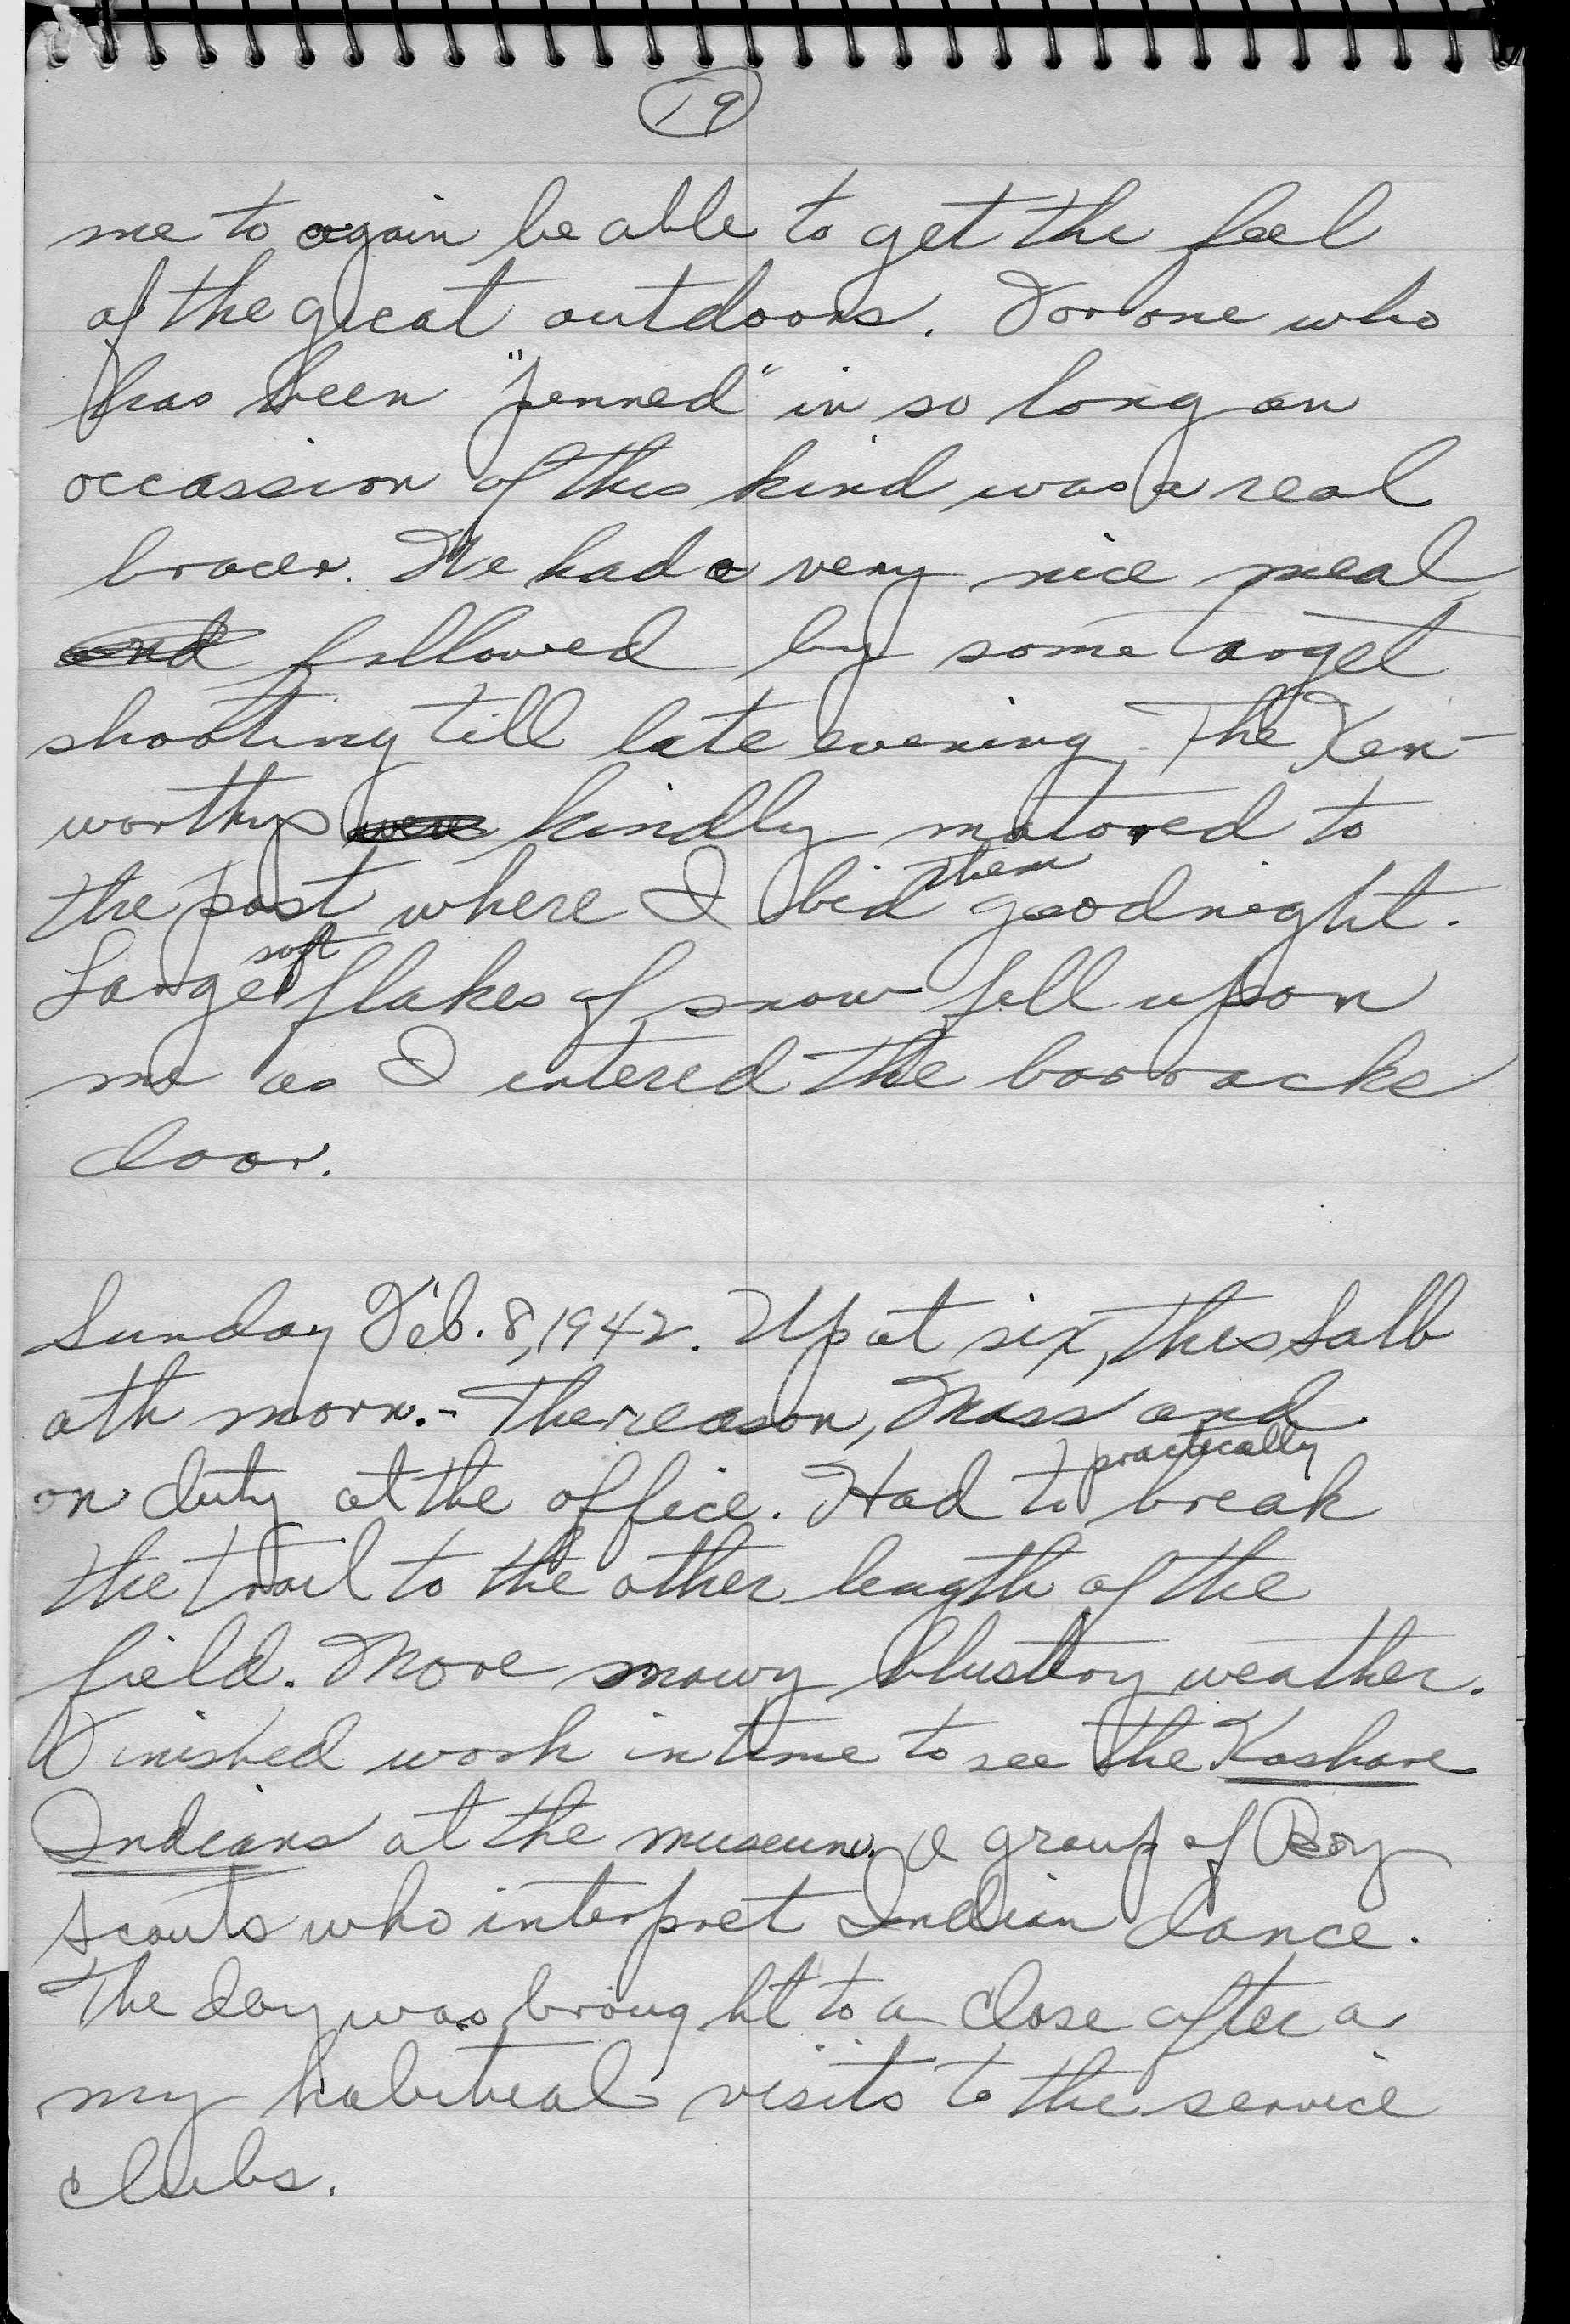 19
me to again be able to get the feel
of the great outdoors. For one who
has been "penned" in so long an
occassion of this kind was a real
bracer. We had a very nice meal
and followed by some target
shooting till late evening. The Ken-
worthys were kindly motored to
the post where I bid them goodnight.
Large soft flakes of snow fell upon
me as I entered the barracks
door.
Sunday Feb. 8, 1942. Up at six, this Sabb
ath morn. - The reason, Mass and
on duty at the office. Had to practically break
the trail to the other length of the
field. More snowy blustory weather.
Finished work in time to see the Koshare
Indians at the museum. A group of Boy
Scouts who interpret Indian dance.
The day was brought to a close after a
my habitual visits to the service
clubs.